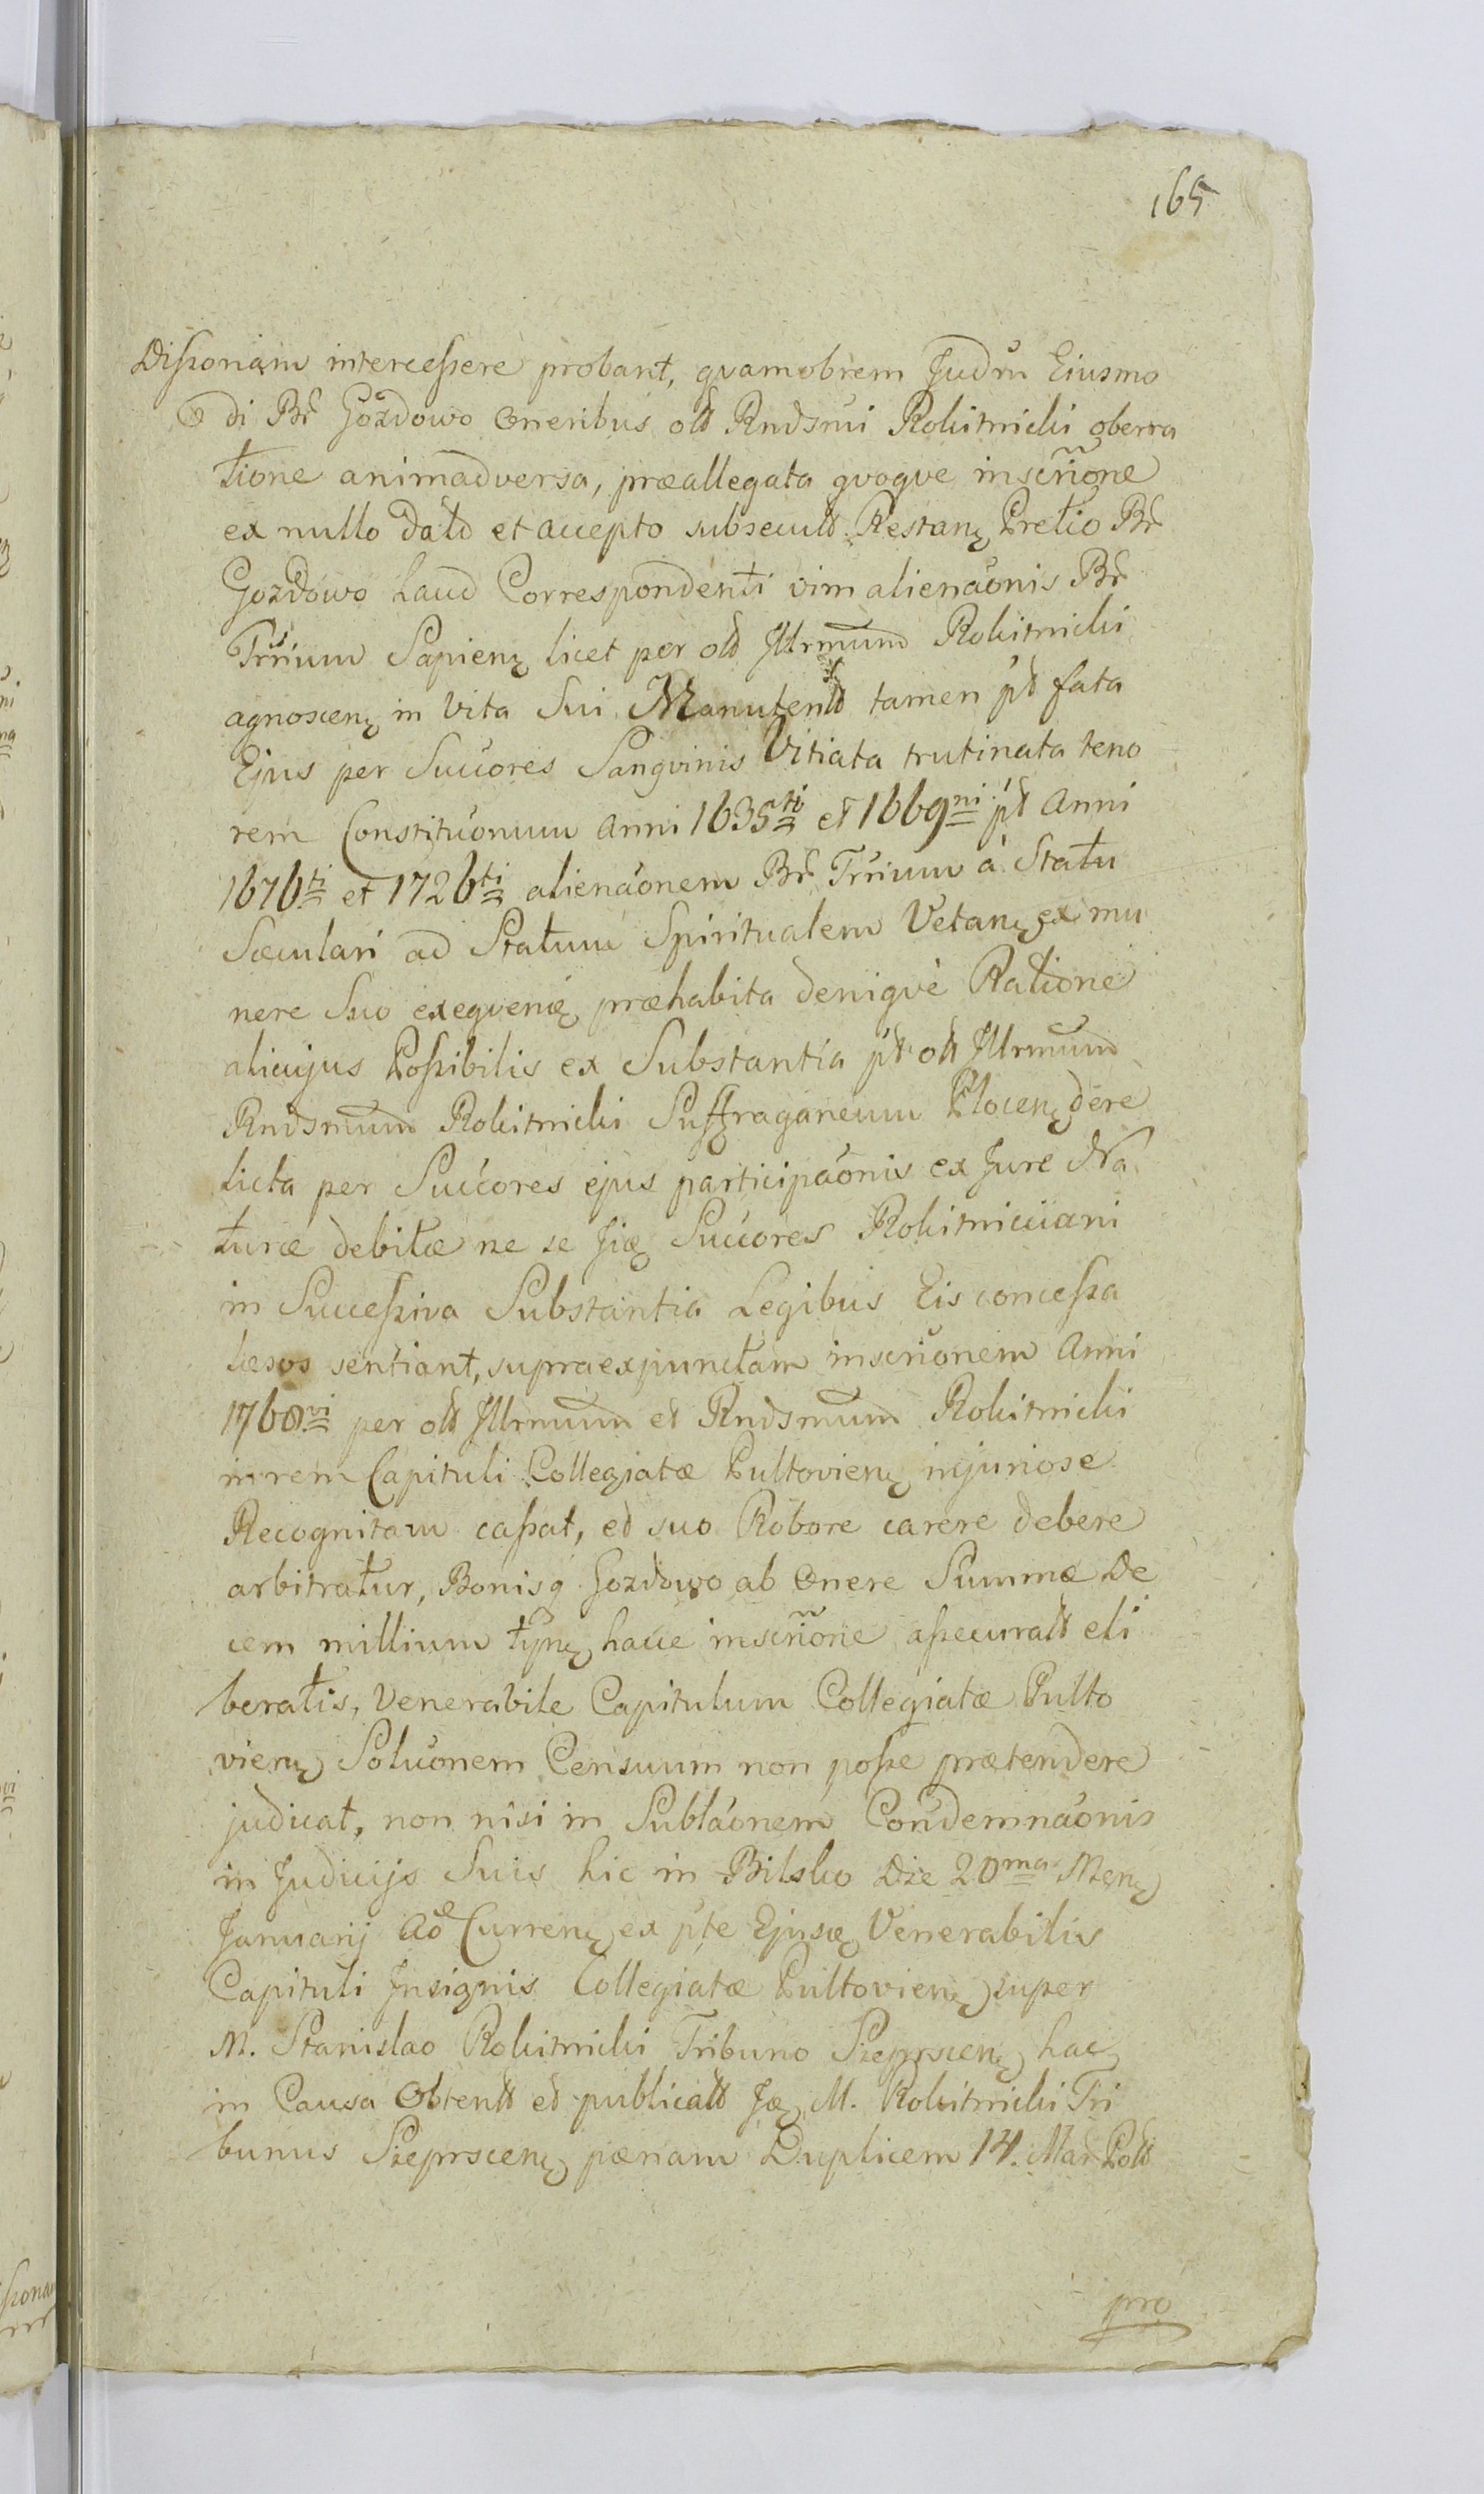 165
Dißionem interceßere probant, qvamobrem Judm Eiusmo
di Br Gozdowo oneribus olt Rndsmi Rokitnicki oberra
tione animadversa, præallegata qvoqve inscrione
ex nullo dato et accepto subsecuta Restanę Pretio Br
Gozdowo haud Correspondenti vim alienaonis Br
Trrium Sapienę licet per olt Illrmum Rokitnicki
agnoscenę in vita Sui Manutenta tamen pt fata
Ejus per Succores Sangvinis Vitiata trutinata teno
rem Constituonum Anni 1635ti et 1669ni pt Anni
1676ti et 1726ti alienaonem Br Trrium á Statu
Sæculari ad Statum Spiritualem Vetanę ex mu
nere Suo exeqvenę præhabita deniqvè Ratione
alicujus Poßibilis ex Substantia pt olt Illrmum
Rndsmum Rokitnicki Suffraganeum Plocenę dere
licta per Succores ejus participaonis ex Jure Na
turæ debitæ ne se Jię Succores Rokitnicciani
in Succeßiva Substantia Legibus Eis conceßa
læsos sentiant, supraexpunctam inscrionem Anni
1760vi per olt Illrmum et Rndsmum Rokitnicki
in rem Capituli Collegiatæ Pultovienę injuriose
Recognitam caßat, et suo Robore carere debere
arbitratur, Bonisq Gozdowo ab Onere Summæ De
cem millium tynę hacce inscrione aßecurata eli
beratis, Venerabile Capitulum Collegiatæ Pulto
vienę Soluonem Censuum non poße prætendere
judicat, non nisi in Sublaonem Condemnaonis
in Judicijs Suis hic in Bilsko Die 20ma Menę
Januarij Ao Currenę ex pte Ejusę Venerabilis
Capituli Insignis Collegiatæ Pultovienę super
M. Stanislao Rokitnicki Tribuno Szeprscenę hac
in Causa Obtenta et publicata Ję M. Rokitnicki Tri
bunus Szeprscenę pænam Duplicem 14. Mar Polt
pro